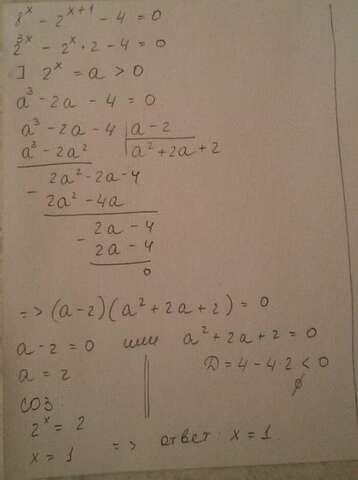 8^x - 2^{x+1} - 4 = 0
2^{3x} - 2^x · 2 - 4 = 0
] 2^x = a > 0
a³ - 2a - 4 = 0
a³ - 2a - 4 | a - 2
a³ - 2a² | a² + 2a + 2
2a² - 2a - 4
- 2a² - 4a
2a - 4
- 2a - 4
0
=> (a-2)(a² + 2a + 2) = 0
a - 2 = 0 или a² + 2a + 2 = 0
a = 2 D = 4 - 4·2 < 0
∅
СОЗ:
2^x = 2
x = 1 => ответ: x = 1.